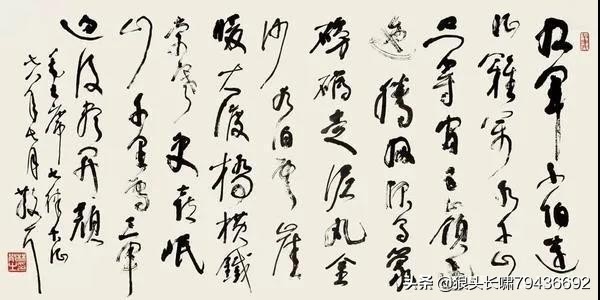 红军不怕遠
征難萬水千山
只等闲五嶺逶
迤腾细浪乌蒙
磅礴走泥丸金
沙水拍雲崖
暖大渡橋横鐵
索寒更喜岷
山千里雪三軍
过後尽开顏
毛主席七律长征
年七月
头条 @狼头长啸79436692